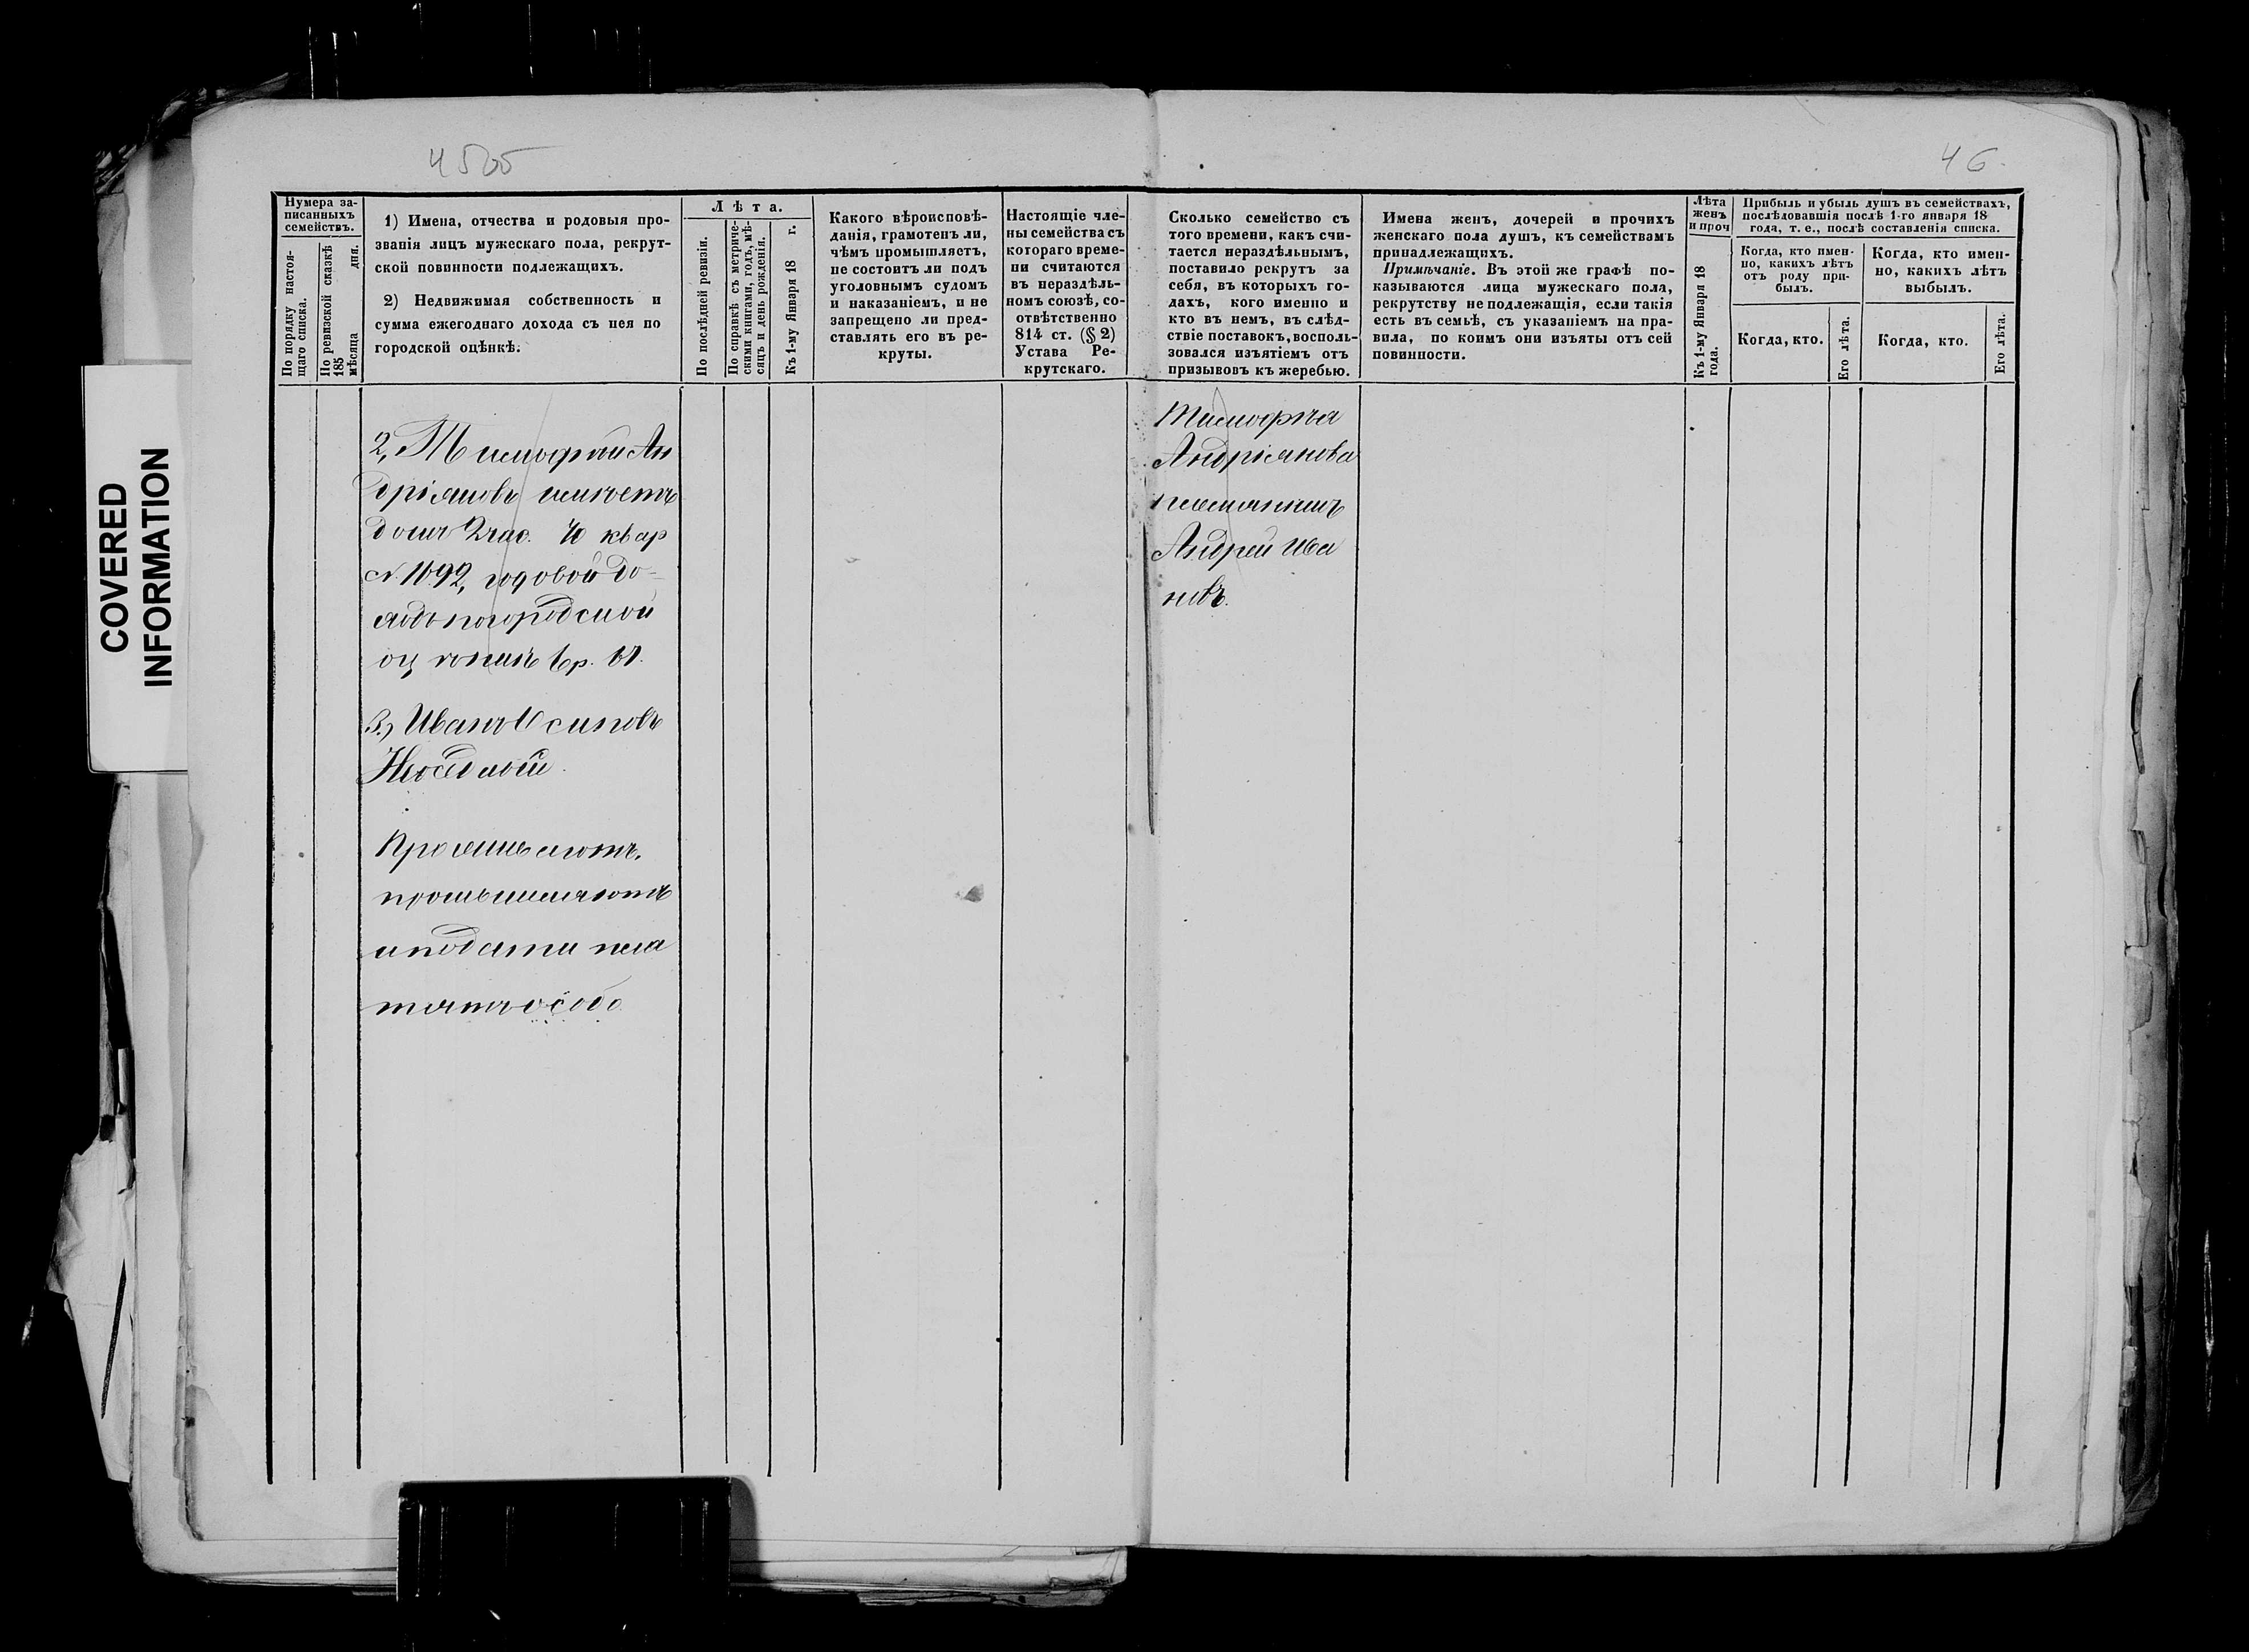 45об
46.
COVERED
INFORMATION
Нумера за-
писанныхъ
семействъ.
По порядку настоя-
щаго списка.
По ревизской сказкѣ
185
мѣсяца дня.
1) Имена, отчества и родовыя про-
званія лицъ мужескаго пола, рекрут-
ской повинности подлежащихъ.
2) Недвижимая собственность и
сумма ежегоднаго дохода съ нея по
городской оцѣнкѣ.
Лѣта.
По послѣдней ревизіи.
По справкѣ съ метриче-
скими книгами, годъ, мѣ-
сяцъ и день рожденія.
Къ 1-му Января 18 г.
Какого вѣроисповѣ-
данія, грамотенъ ли,
чѣмъ промышляетъ,
не состоитъ ли подъ
уголовнымъ судомъ
и наказаніемъ, и не
запрещено ли пред-
ставлять его въ ре-
круты.
Настоящіе чле-
ны семейства съ
котораго време-
ни считаются
въ нераздѣль-
номъ союзѣ, со-
отвѣтственно
814 ст. (§ 2)
Устава Ре-
крутскаго.
Сколько семейство съ
того времени, какъ счи-
тается нераздѣльнымъ,
поставило рекрутъ за
себя, въ которыхъ го-
дахъ, кого именно и
кто въ немъ, въ слѣд-
ствіе поставокъ, восполь-
зовался изъятіемъ отъ
призывовъ къ жеребью.
Имена женъ, дочерей и прочихъ
женскаго пола душъ, къ семействамъ
принадлежащихъ.
Примѣчаніе. Въ этой же графѣ по-
казываются лица мужескаго пола,
рекрутству не подлежащія, если такія
есть въ семьѣ, съ указаніемъ на пра-
вила, по коимъ они изъяты отъ сей
повинности.
Лѣта
женъ
и проч
Къ 1-му Января 18
года.
Прибыль и убыль душъ въ семействахъ,
послѣдовавшія послѣ 1-го января 18
года, т. е., послѣ составленія списка.
Когда, кто имен-
но, какихъ лѣтъ
отъ роду при-
былъ.
Когда, кто имен-
но, какихъ лѣтъ
выбылъ.
Когда, кто.
Его лѣта.
Когда, кто.
Его лѣта.
2, Тимофѣй Ан
дріяновъ имѣетъ
домъ 2 час. квар
N. 1092, годовой до-
ходъ по городской
оцѣнкѣ
3, Иванъ Осиповъ
промышляютъ
и подати пла
тятъ особо
Тимофѣя
Андріянова
племянникъ
Андрей Ива
новъ.